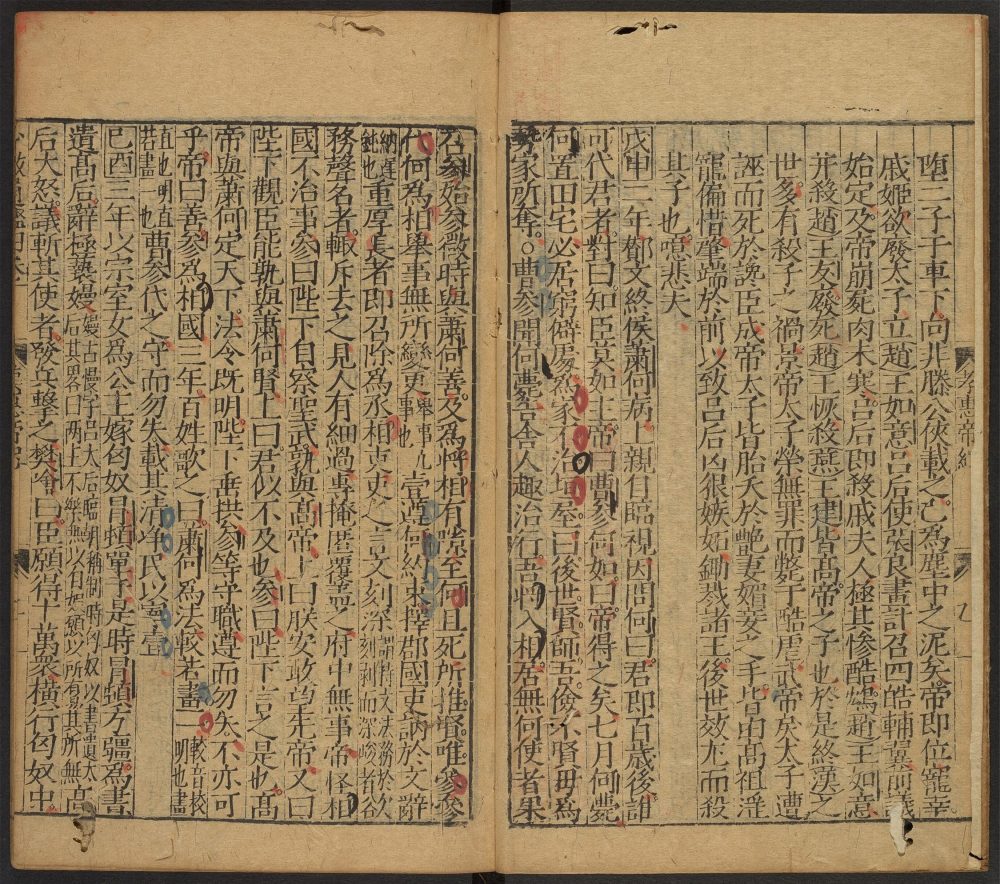 墮二子于車下向非滕公俠載之已為塵中之泥矣帝即位寵幸
戚姬欲廢太子立趙王如意呂后使張良畫計召四皓輔翼前議
始定及帝崩死肉未寒呂后即殺戚夫人極其慘酷鴆趙王如意
并殺趙王友廢死趙王恢殺燕王建皆高帝之子也於是終漢之
世多有殺子之禍景帝太子榮無罪而斃于酷虐武帝矣太子遭
誣而死於讒臣成帝太子皆胎夭於艷妻媚妾之手皆由高祖淫
寵備惜肇端於前以致呂后凶狠嫉妬鋤㦸諸王後世效尤而殺
其子也噫悲夫
戊申二年酇文終侯蕭何病上親自臨視因問何曰君即百歲後誰
可代君者對曰知臣莫如主帝曰曹參何如曰帝得之矣七月何薨
何置田宅必居窮僻處為家不治垣屋曰後世賢師吾儉不賢毋為
勢家所奪○曹參聞何薨告舍人趣治行吾且入相居無何使者果
召參始參微時與蕭何善及為將相有隙至何且死所推賢唯參參
代何為相舉事無所變更舉事也九壹遵何約束擇郡國吏訥於文辭
訥遲鈍也重厚長者即召除為丞相吏吏之言文刻深謂持文法務於欲刻剝而深峻者谷
務聲名者輒斥去之見人有細過專掩匿覆蓋之府中無事帝怪相
國不治事參曰陛下自察聖武孰與高帝上曰朕安敢望先帝又曰
陛下觀臣能孰與蕭何賢上曰君似不及也參曰陛下言之是也高
帝與蕭何定天下法令既明陛下垂拱參等守職遵而勿失不亦可
乎帝曰善參為相國三年百姓歌之曰蕭何為法較若畫一較音校明也畫
直也明直若畫一也曹參代之守而勿失載其清淨民以寧壹
己酉三年以宗室女為公主嫁匈奴冒頓單于是時冒頓方彊為書
遺高后辭極䙝嫚嫚古慢字呂太后臨朝稱制時匈奴以書遺太后其畧曰兩主不樂無以自娛願以所有易其所無高
后大怒議斬其使者發兵擊之樊噲曰臣願得十萬衆橫行匈奴中
孝惠帝紀
九